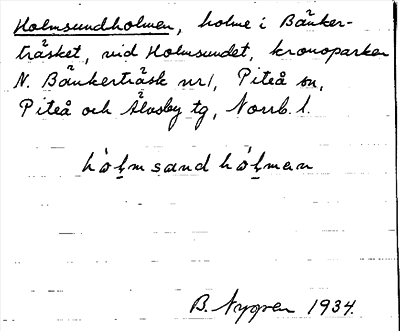 Holmsundholmen, holme i Bänker-
träsket, vid Holmsundet, kronoparken
N. Bänkerträsk nr 1, Piteå sn,
Piteå och Älvsby tg, Norrb. l.
hòlmsand hòlman
B. Nygren 1934.